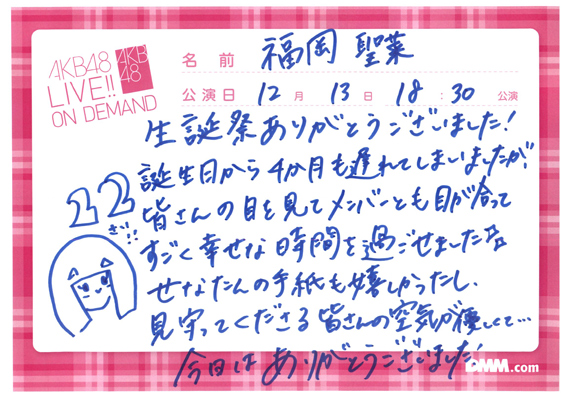 AKB48
LIVE!!
ON DEMAND
AKB
48
名前 福岡 聖菜
公演日 12月 13日 18:30 公演
生誕祭ありがとうございました!
誕生日から4か月も遅れてしまいましたが
皆さんの目を見てメンバーとも目が合って
すごく幸せな時間を過ごせました
せなたんの手紙も嬉しかったし、
見守ってくださる皆さんの空気が優しくて…
今日はありがとうございました
22
さい!!
DMM.com